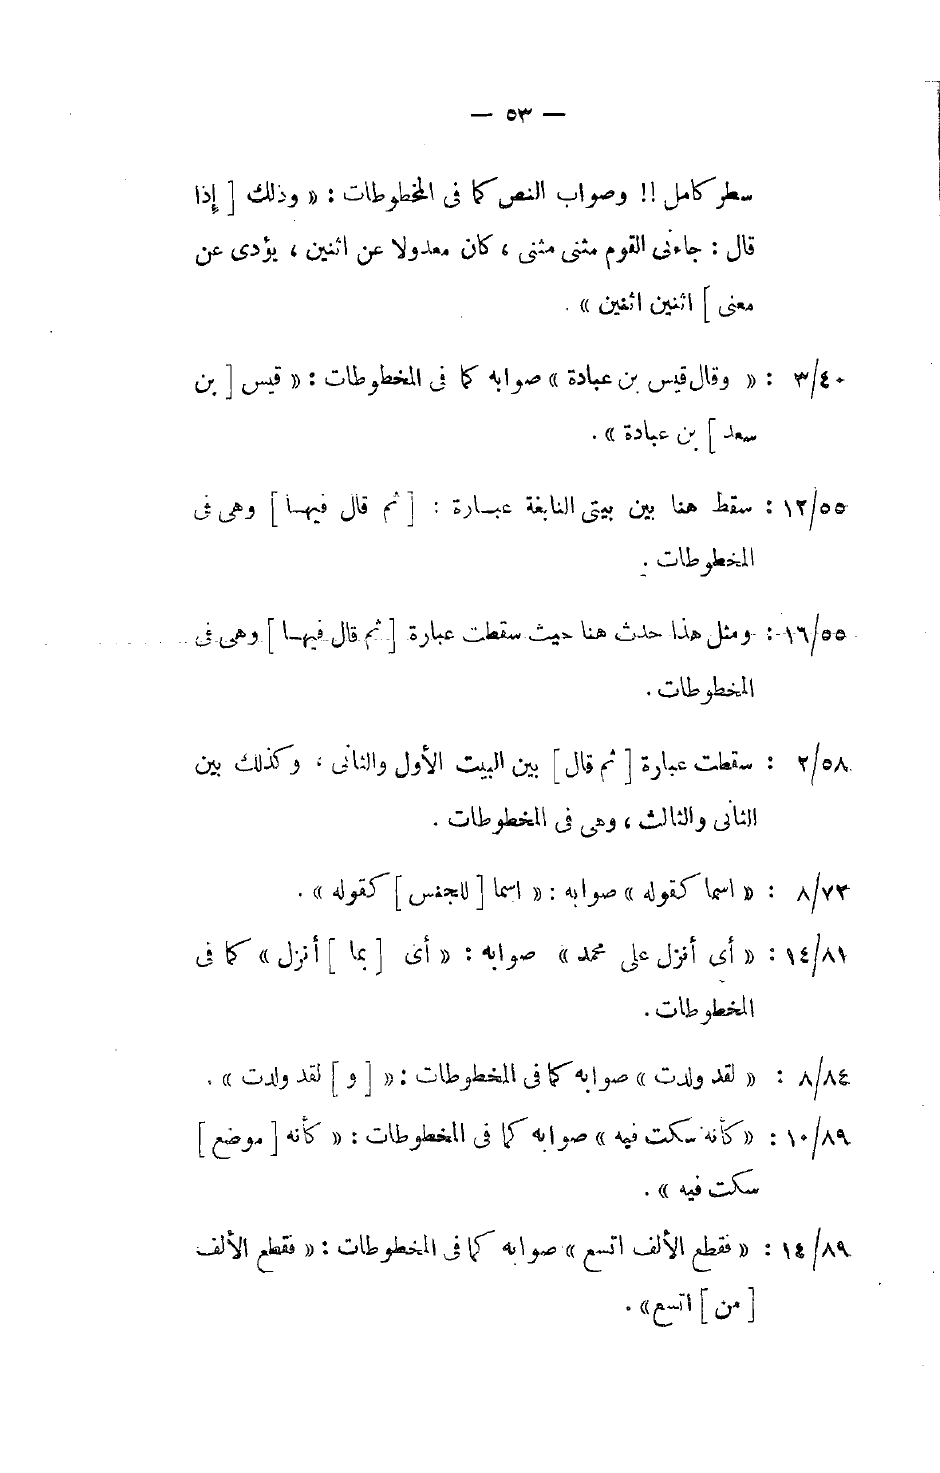 — ٥٣ —
سطر كامل !! وصواب النص كما فى المخطوطات : « وذلك [ إذا
قال : جاءنى القوم مثنى مثنى ، كان معدولا عن اثنين ، يؤدى عن
معنى ] اثنين اثنين » .
٣/٤٠ : « وقال قيس بن عبادة » صوابه كما فى المخطوطات : « قيس [ بن
سعد ] بن عبادة » .
١٢/٥٥ : سقط هنا بين بيتى النابغة عبـارة : [ ثم قال فيهـا ] وهى فى
المخطوطات .
١٦/٥٥ : ومثل هذا حدث هنا حيث سقطت عبارة [ ثم قال فيهـا ] وهى فى
المخطوطات .
٢/٥٨ : سقطت عبارة [ ثم قال ] بين البيت الأول والثانى ، وكذلك بين
الثانى والثالث ، وهى فى المخطوطات .
٨/٧٣ : « اسما كقوله » صوابه : « اسما [ للجنس ] كقوله » .
١٤/٨١ : « أى أنزل على محمد » صوابه : « أى [ بما ] أنزل » كما فى
المخطوطات .
٨/٨٤ : « لقد ولدت » صوابه كما فى المخطوطات : « [ و ] لقد ولدت » .
١٠/٨٩ : « كأنه سكت فيه » صوابه كما فى المخطوطات : « كأنه [ موضع ]
سكت فيه » .
١٤/٨٩ : « فقطع الألف اتسع » صوابه كما فى المخطوطات : « فقطع الألف
[ من ] اتسع » .